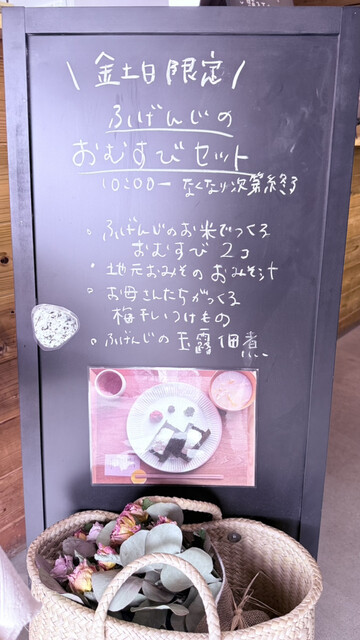 \ 金土日限定 /
ふげんじの
おむすびセット
10:00ー なくなり次第終了
・ふげんじのお米でつくる
おむすび 2コ
・地元おみその おみそ汁
・お母さんたちがつくる
梅干しいつけもの
・ふげんじの 玉露佃煮